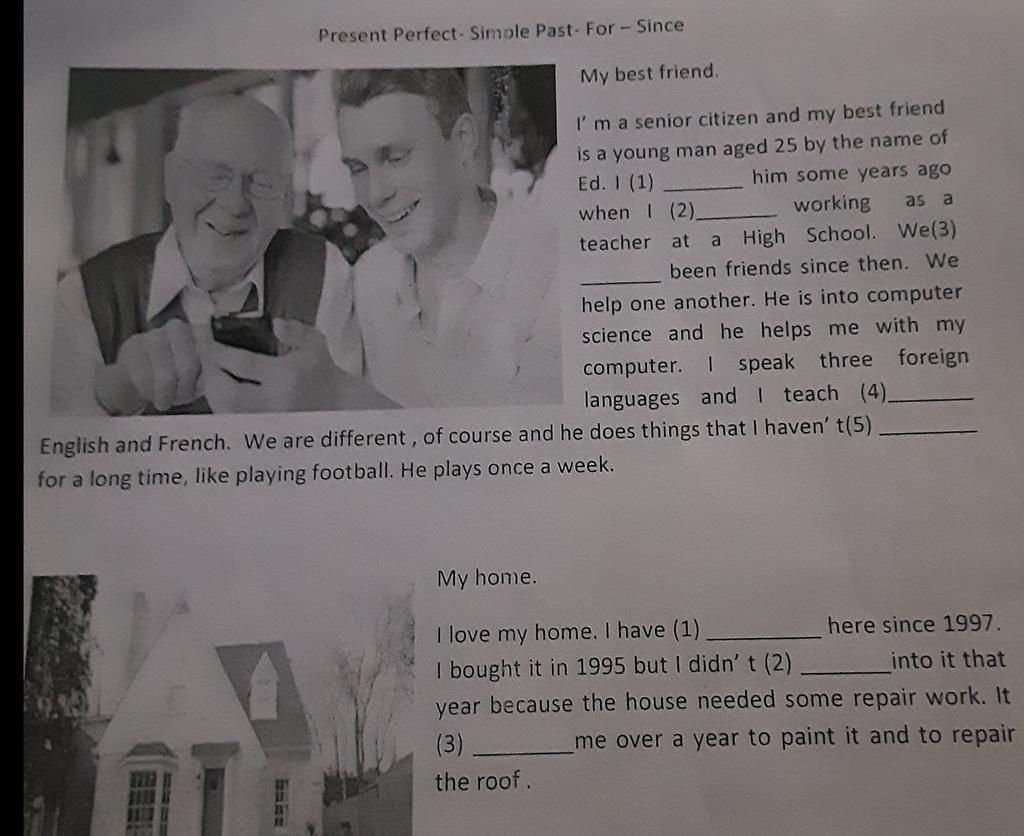 Present Perfect- Simple Past- For – Since
My best friend.
I' m a senior citizen and my best friend
is a young man aged 25 by the name of
Ed. I (1) _______ him some years ago
when I (2)_______ working as a
teacher at a High School. We(3)
_______ been friends since then. We
help one another. He is into computer
science and he helps me with my
computer. I speak three foreign
languages and I teach (4)_______
English and French. We are different , of course and he does things that I haven' t(5) _________
for a long time, like playing football. He plays once a week.
My home.
I love my home. I have (1) __________ here since 1997.
I bought it in 1995 but I didn' t (2) ________into it that
year because the house needed some repair work. It
(3) _________me over a year to paint it and to repair
the roof .